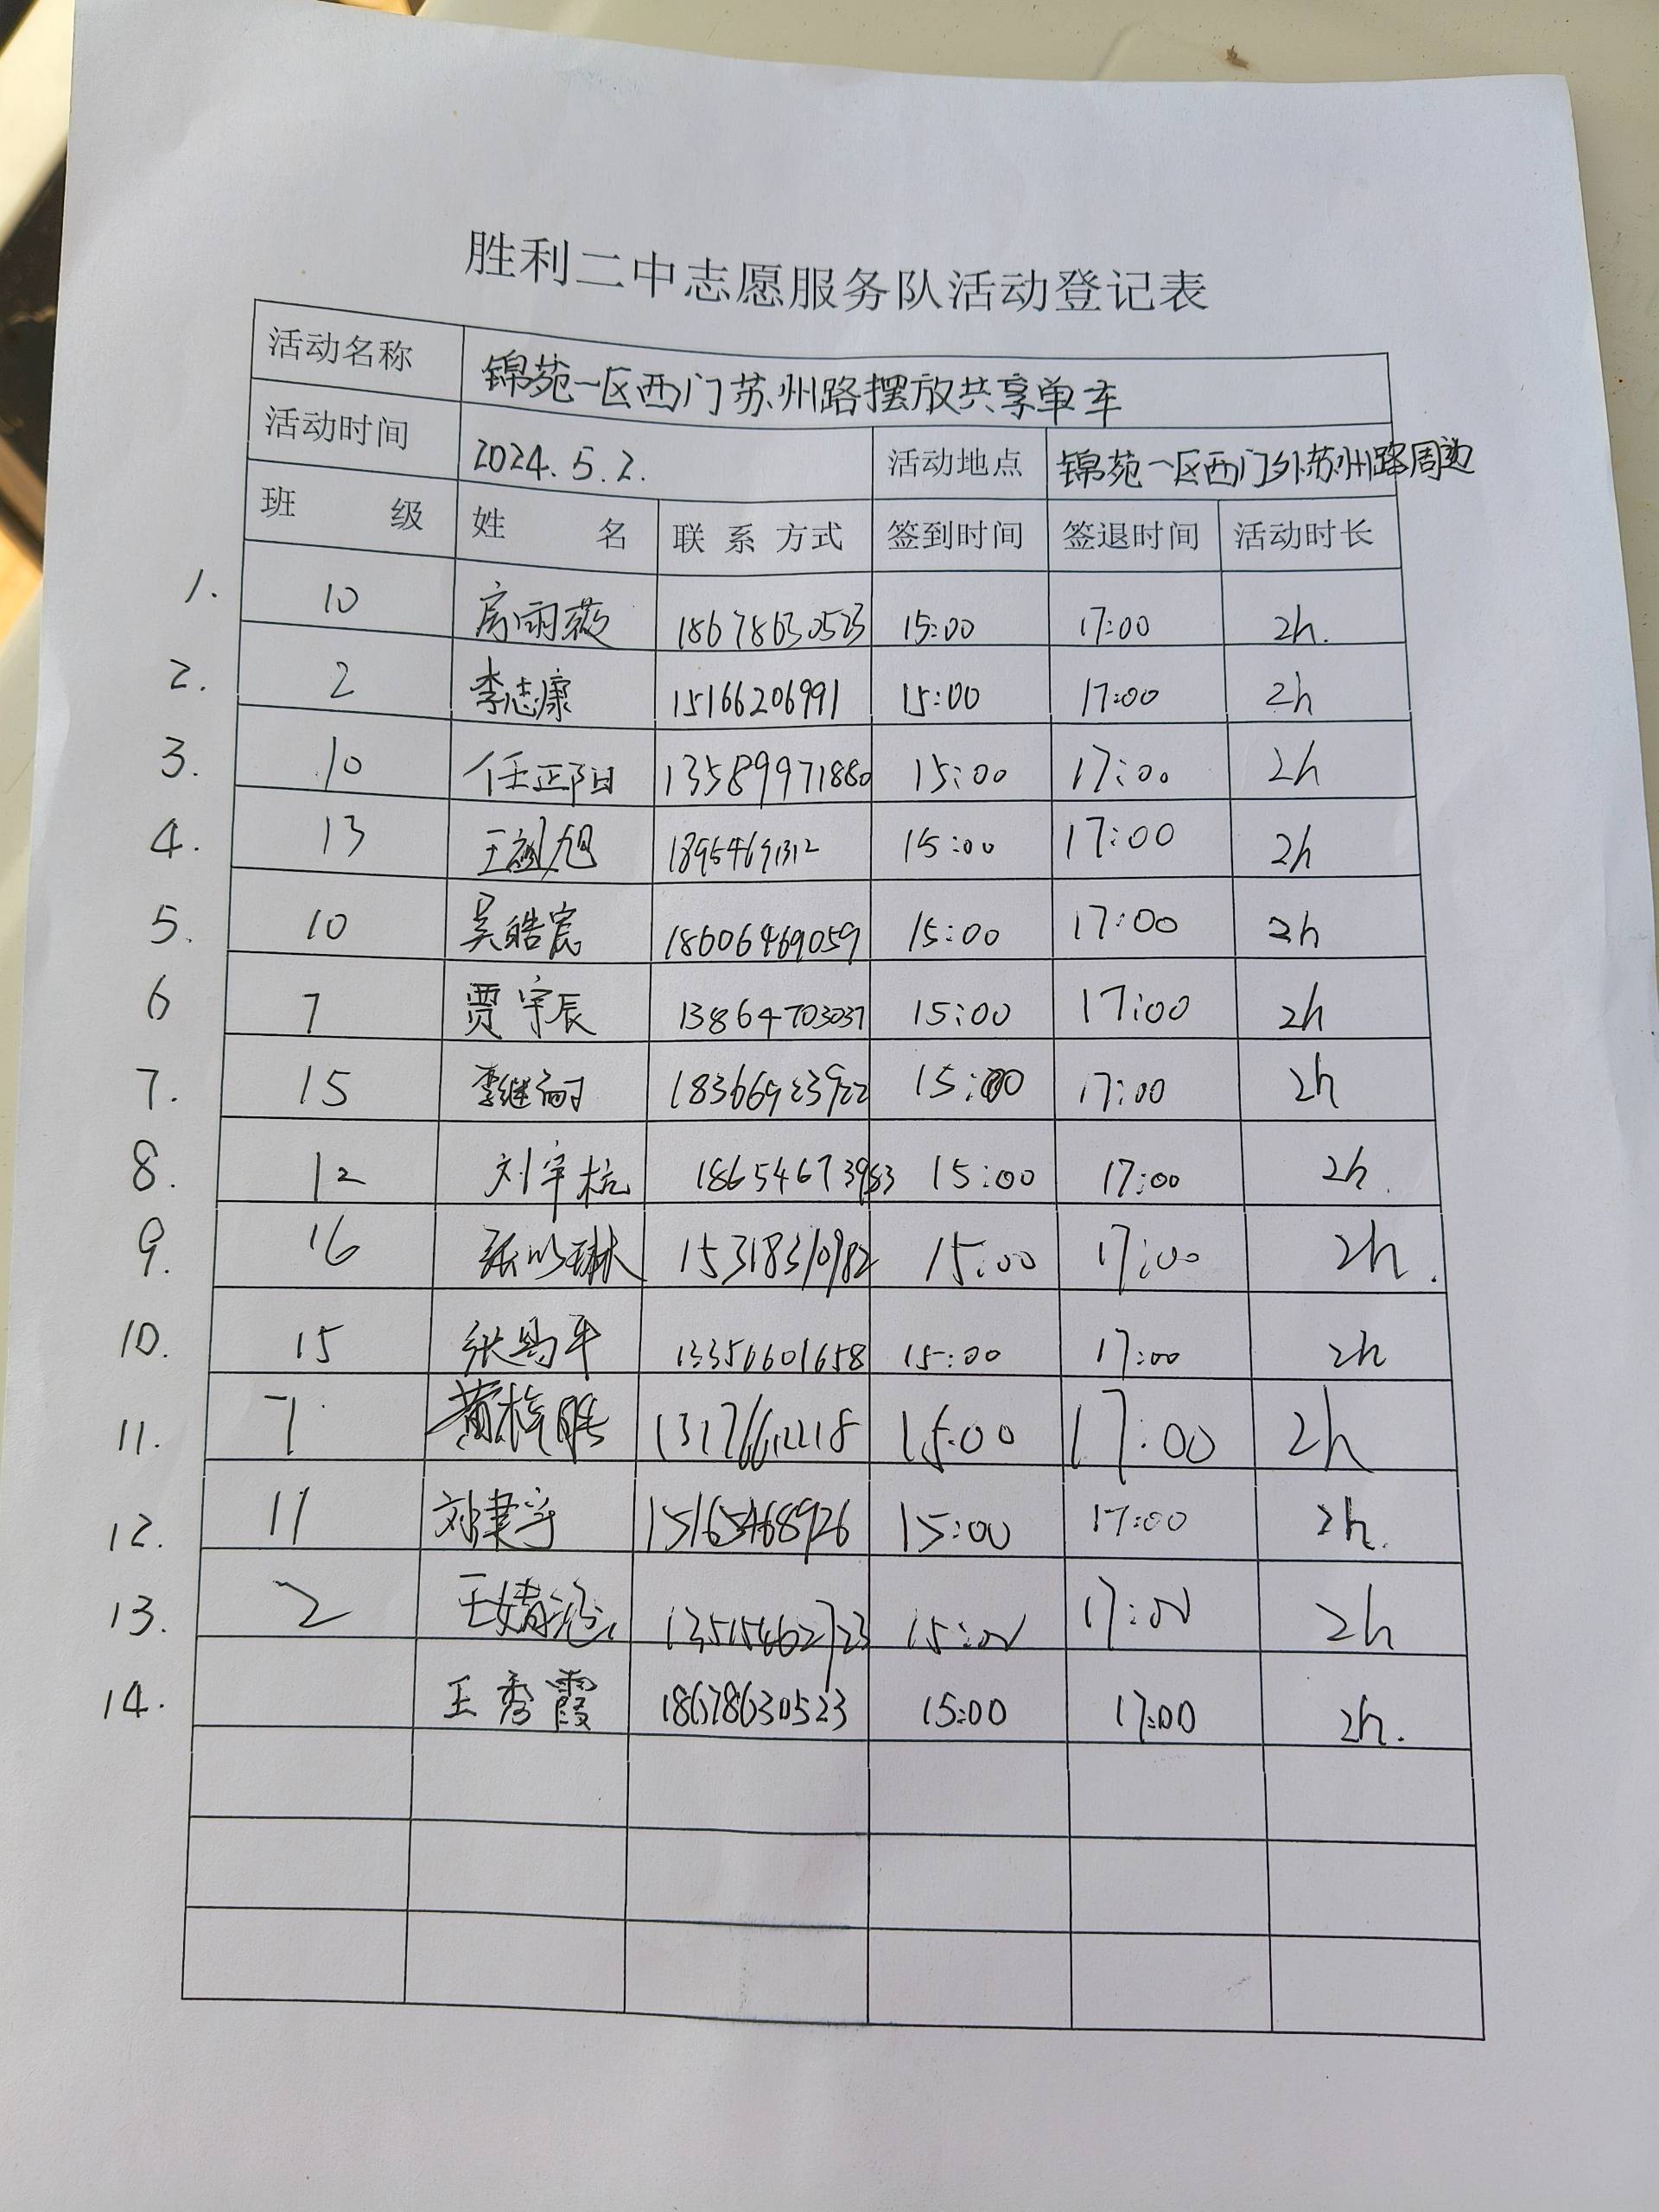 胜利二中志愿服务队活动登记表
活动名称 锦苑一区西门苏州路摆放共享单车
活动时间 2024.5.2. 活动地点 锦苑一区西门外苏州路周边
班 级 姓 名 联系方式 签到时间 签退时间 活动时长
1. 10 房雨薇 18678630523 15:00 17:00 2h.
2. 2 李志康 15166206991 15:00 17:00 2h
3. 10 任正阳 13589971880 15:00 17:00 2h
4. 13 王 旭 18954691312 15:00 17:00 2h
5. 10 吴皓宸 18606469059 15:00 17:00 2h
6 7 贾宇辰 13864703037 15:00 17:00 2h
7. 15 李继 15:00 17:00 2h
8. 12 刘宇杭 15:00 17:00 2h.
9. 16 张 琳 15318310982 15:00 17:00 2h.
10. 15 张 平 13356601658 15:00 17:00 2h
11. 7 黄 15:00 17:00 2h
12. 11 刘建宇 15165468926 15:00 17:00 2h.
13. 2 王婧涵 13515462723 15:00 17:00 2h
14. 王秀霞 18678630523 15:00 17:00 2h.